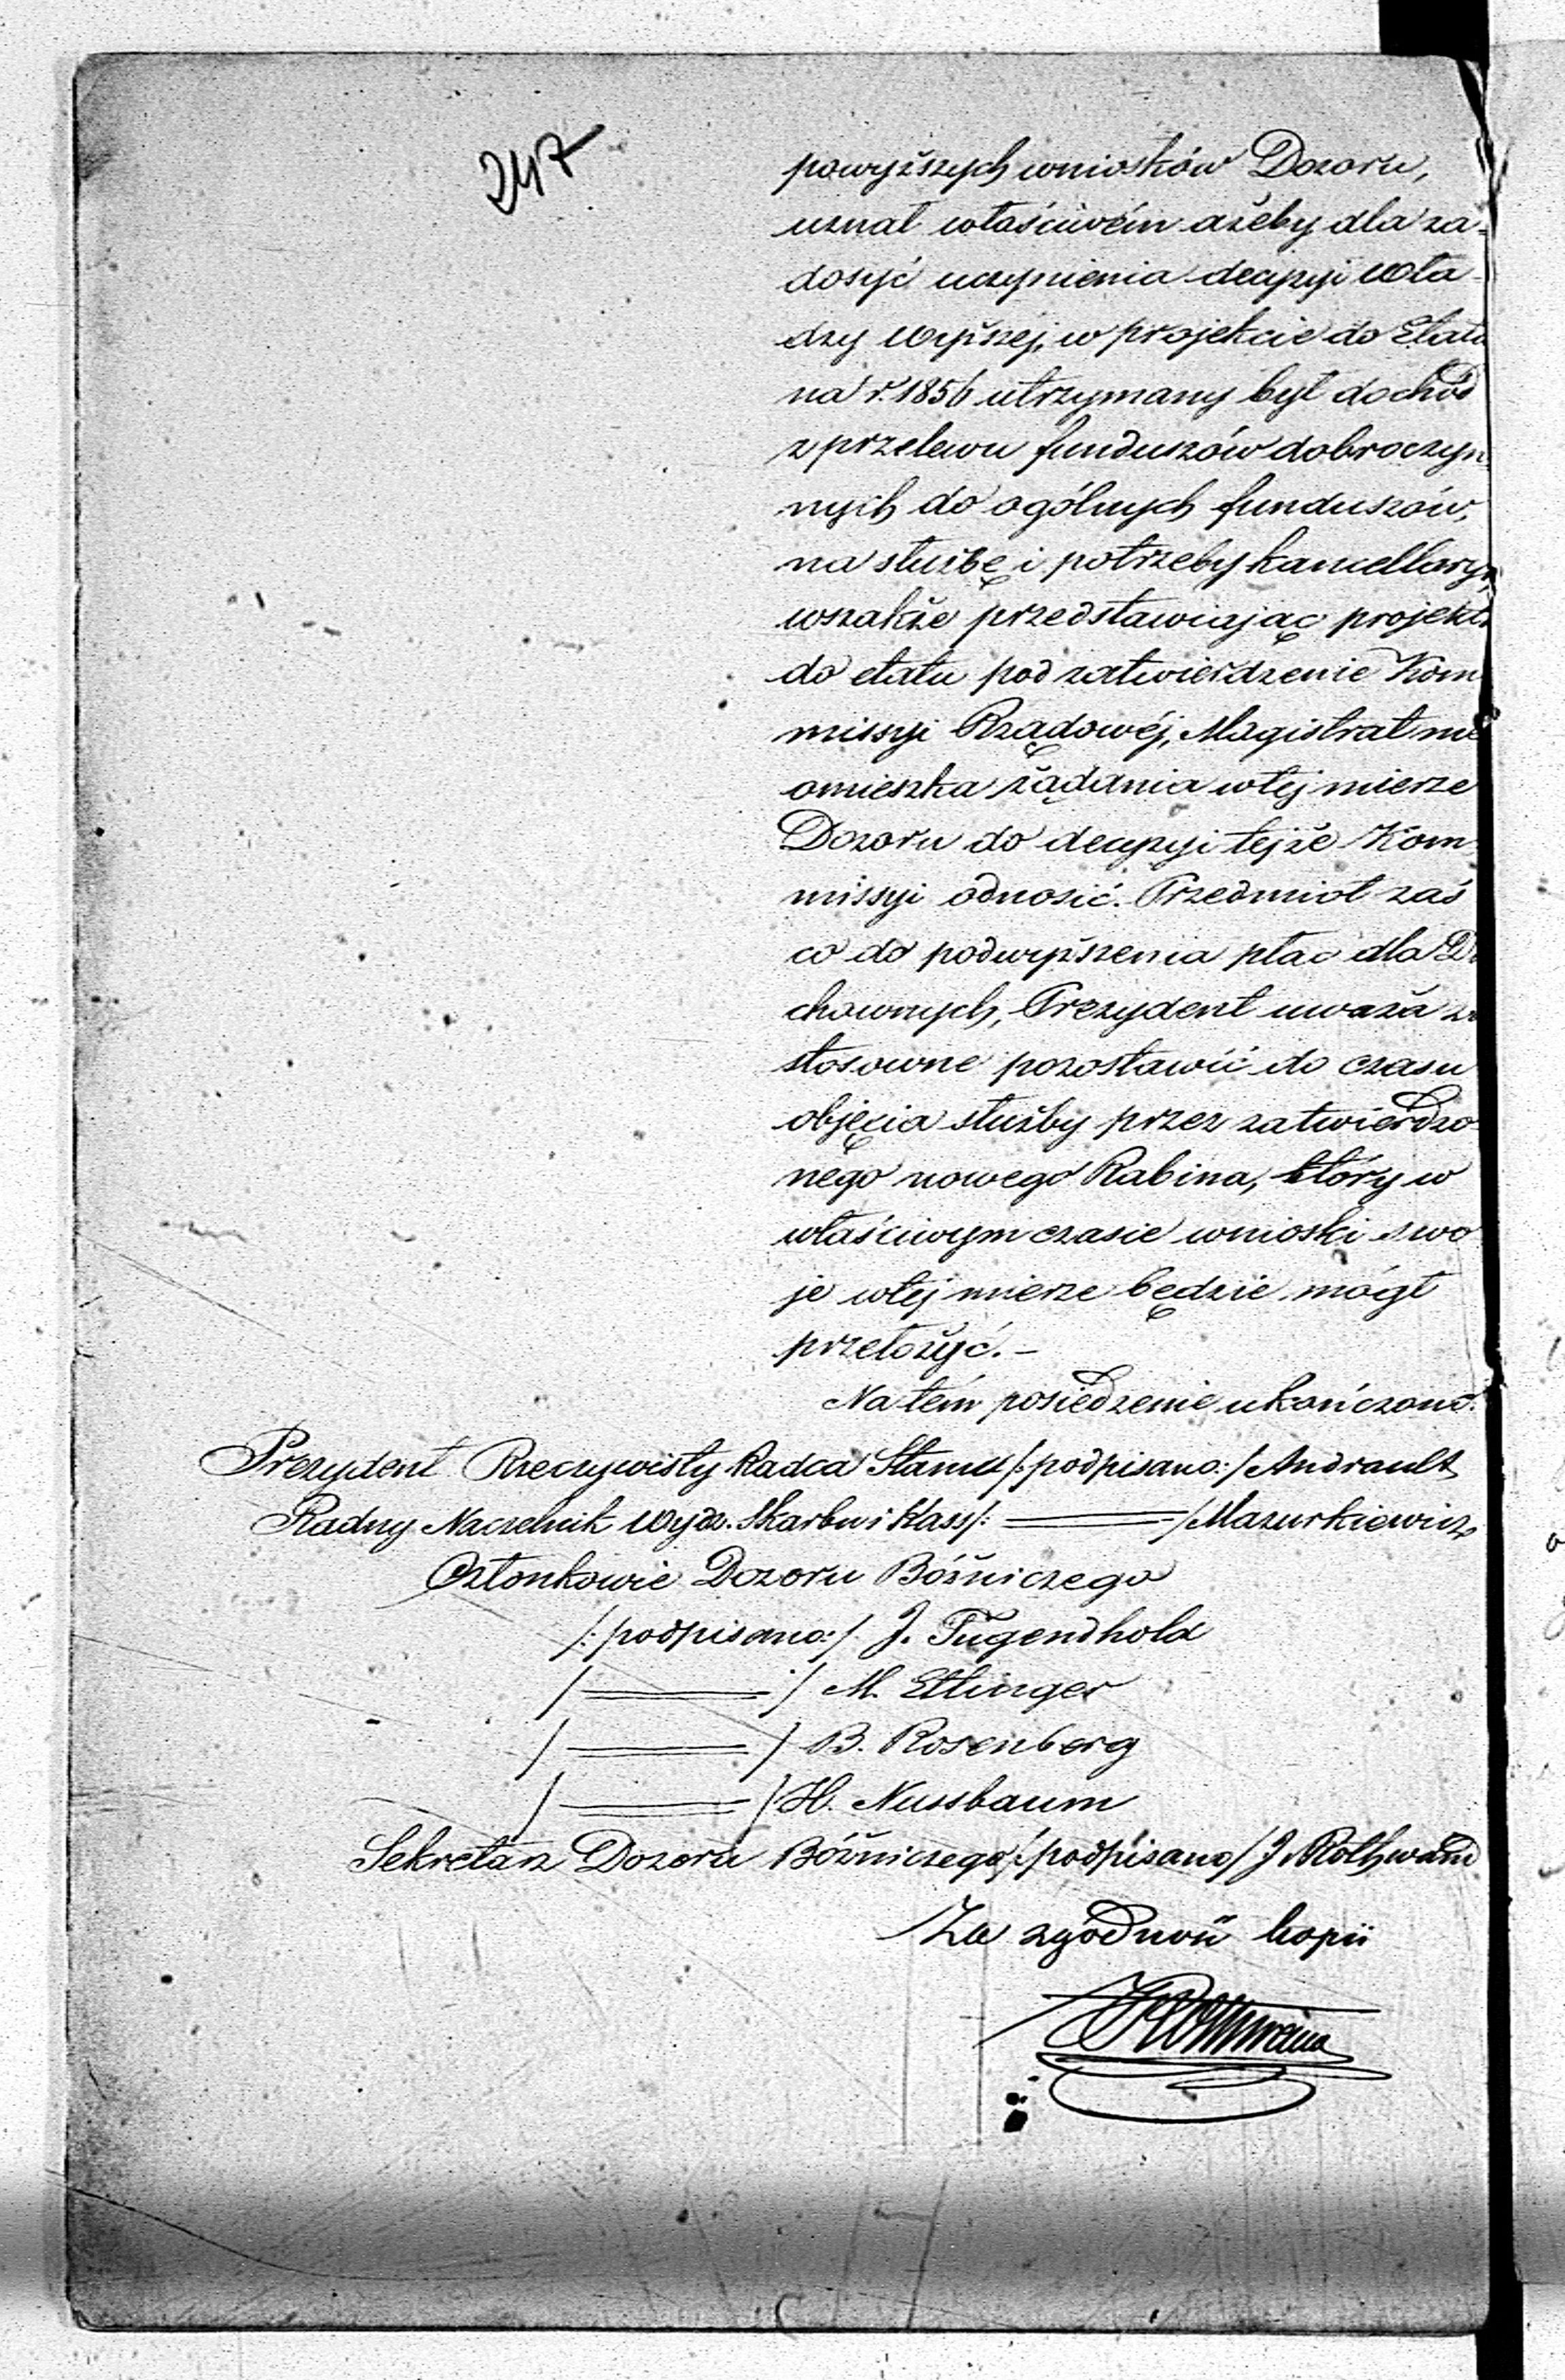 247
powyższych wniosków Dozoru,
uznał właściwém ażeby dla za-
dosyć uczynienia decyzyi Wła-
dzy wyższej, w projekcie do Etatu
na r. 1856 utrzymany był dochód
z przelewu funduszów dobroczyn-
nych do ogólnych funduszów,
na służbę i potrzeby kancellaryi,
wszakże przedstawiając projekt
do etatu pod zatwierdzenie Kom
missyi Rządowéj, Magistrat nie
omieszka żądania w tej mierze
Dozoru do decyzyi tejże Kom
missyi odnosić. Przedmiot zaś
co do podwyższenia płac dla Du
chownych, Prezydent uważa za
stosowne pozostawić do czasu
objęcia służby przez zatwierdzo-
nego nowego Rabina, który w
właściwym czasie wnioski swo
je w tej mierze będzie mógł
przełożyć. —
Na tém posiedzenie ukończono.
Prezydent Rzeczywisty Radca Stanu /:podpisano:/ Andrault
Radny Naczelnik Wydz. Skarbu i Kass /: ═══ / Mazurkiewicz
Członkowie Dozoru Bóżniczego
/: podpisano:/ J. Tugendhold
/ ═══ :/ M. Ettinger
/ ═══ / B. Rosenberg
/ ═══ / H. Nussbaum
Sekretarz Dozoru Bóżniczego /:podpisano/ J Rothwand
Za zgodność kopii
JRothwand